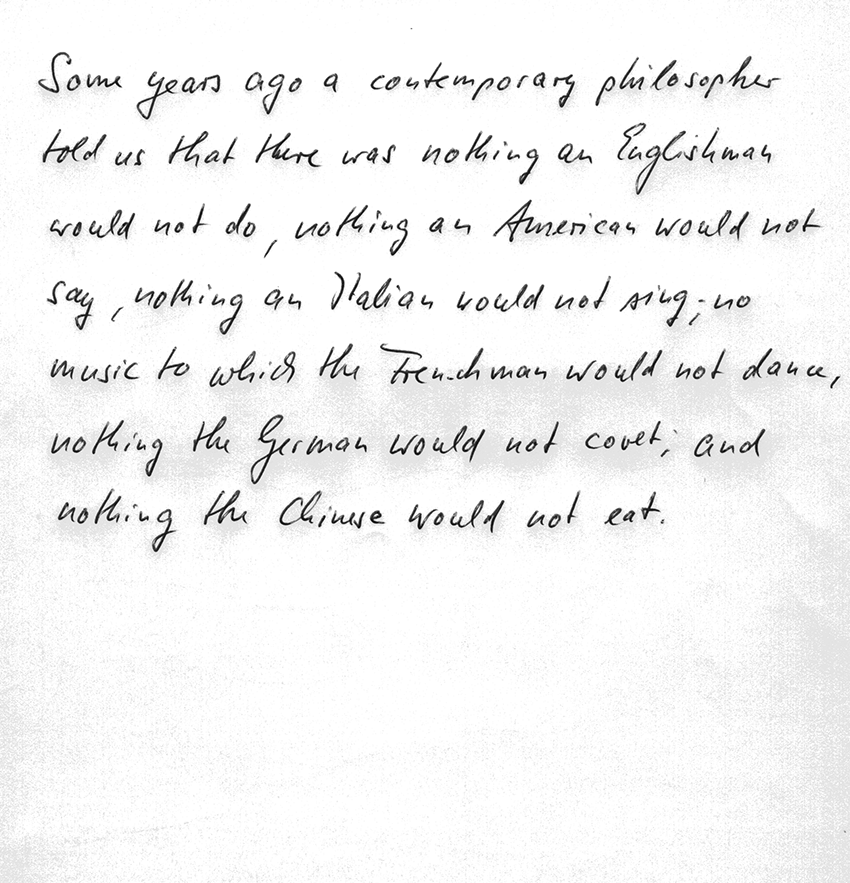 Some years ago a contemporary philosopher
told us that there was nothing an Englishman
would not do, nothing an American would not
say, nothing an Italian would not sing; no
music to which the Frenchman would not dance,
nothing the German would not covet; and
nothing the Chinese would not eat.